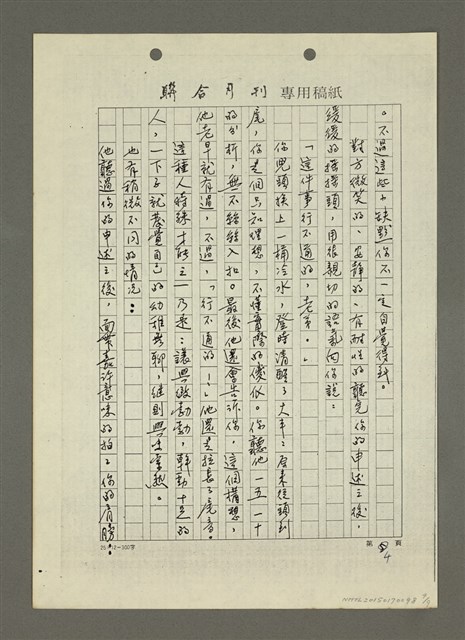 聯合月刊 專用稿紙
。不過這些小缺點你不一定自覺得到。
對方微笑的、安靜的、有耐性的聽完你的申述之後，
緩緩的搖搖頭，用很親切的語氣向你說：
「這件事行不通的，老弟。」
你兜頭挨上一桶冷水，登時清醒了大半；原來從頭到
尾，你是個只知理想，不懂實際的傻瓜。你聽他一五一十
的分析，無不輒輒入扣。最後他還會告訴你，這個構想，
他老早就有過，不過，「行不通的！」他還是拉長了尾音。
這種人特殊才能之一乃是：讓興緻勃勃，幹勁十足的
人，一下子就養覺自己的幼稚無聊，繼則興味索然。
也有稍微不同的情況：
他聽過你的申述之後，面帶嘉許意味的拍拍你的肩膀：
25×12=300字
第 4 頁
NMTL20150170098 4/9